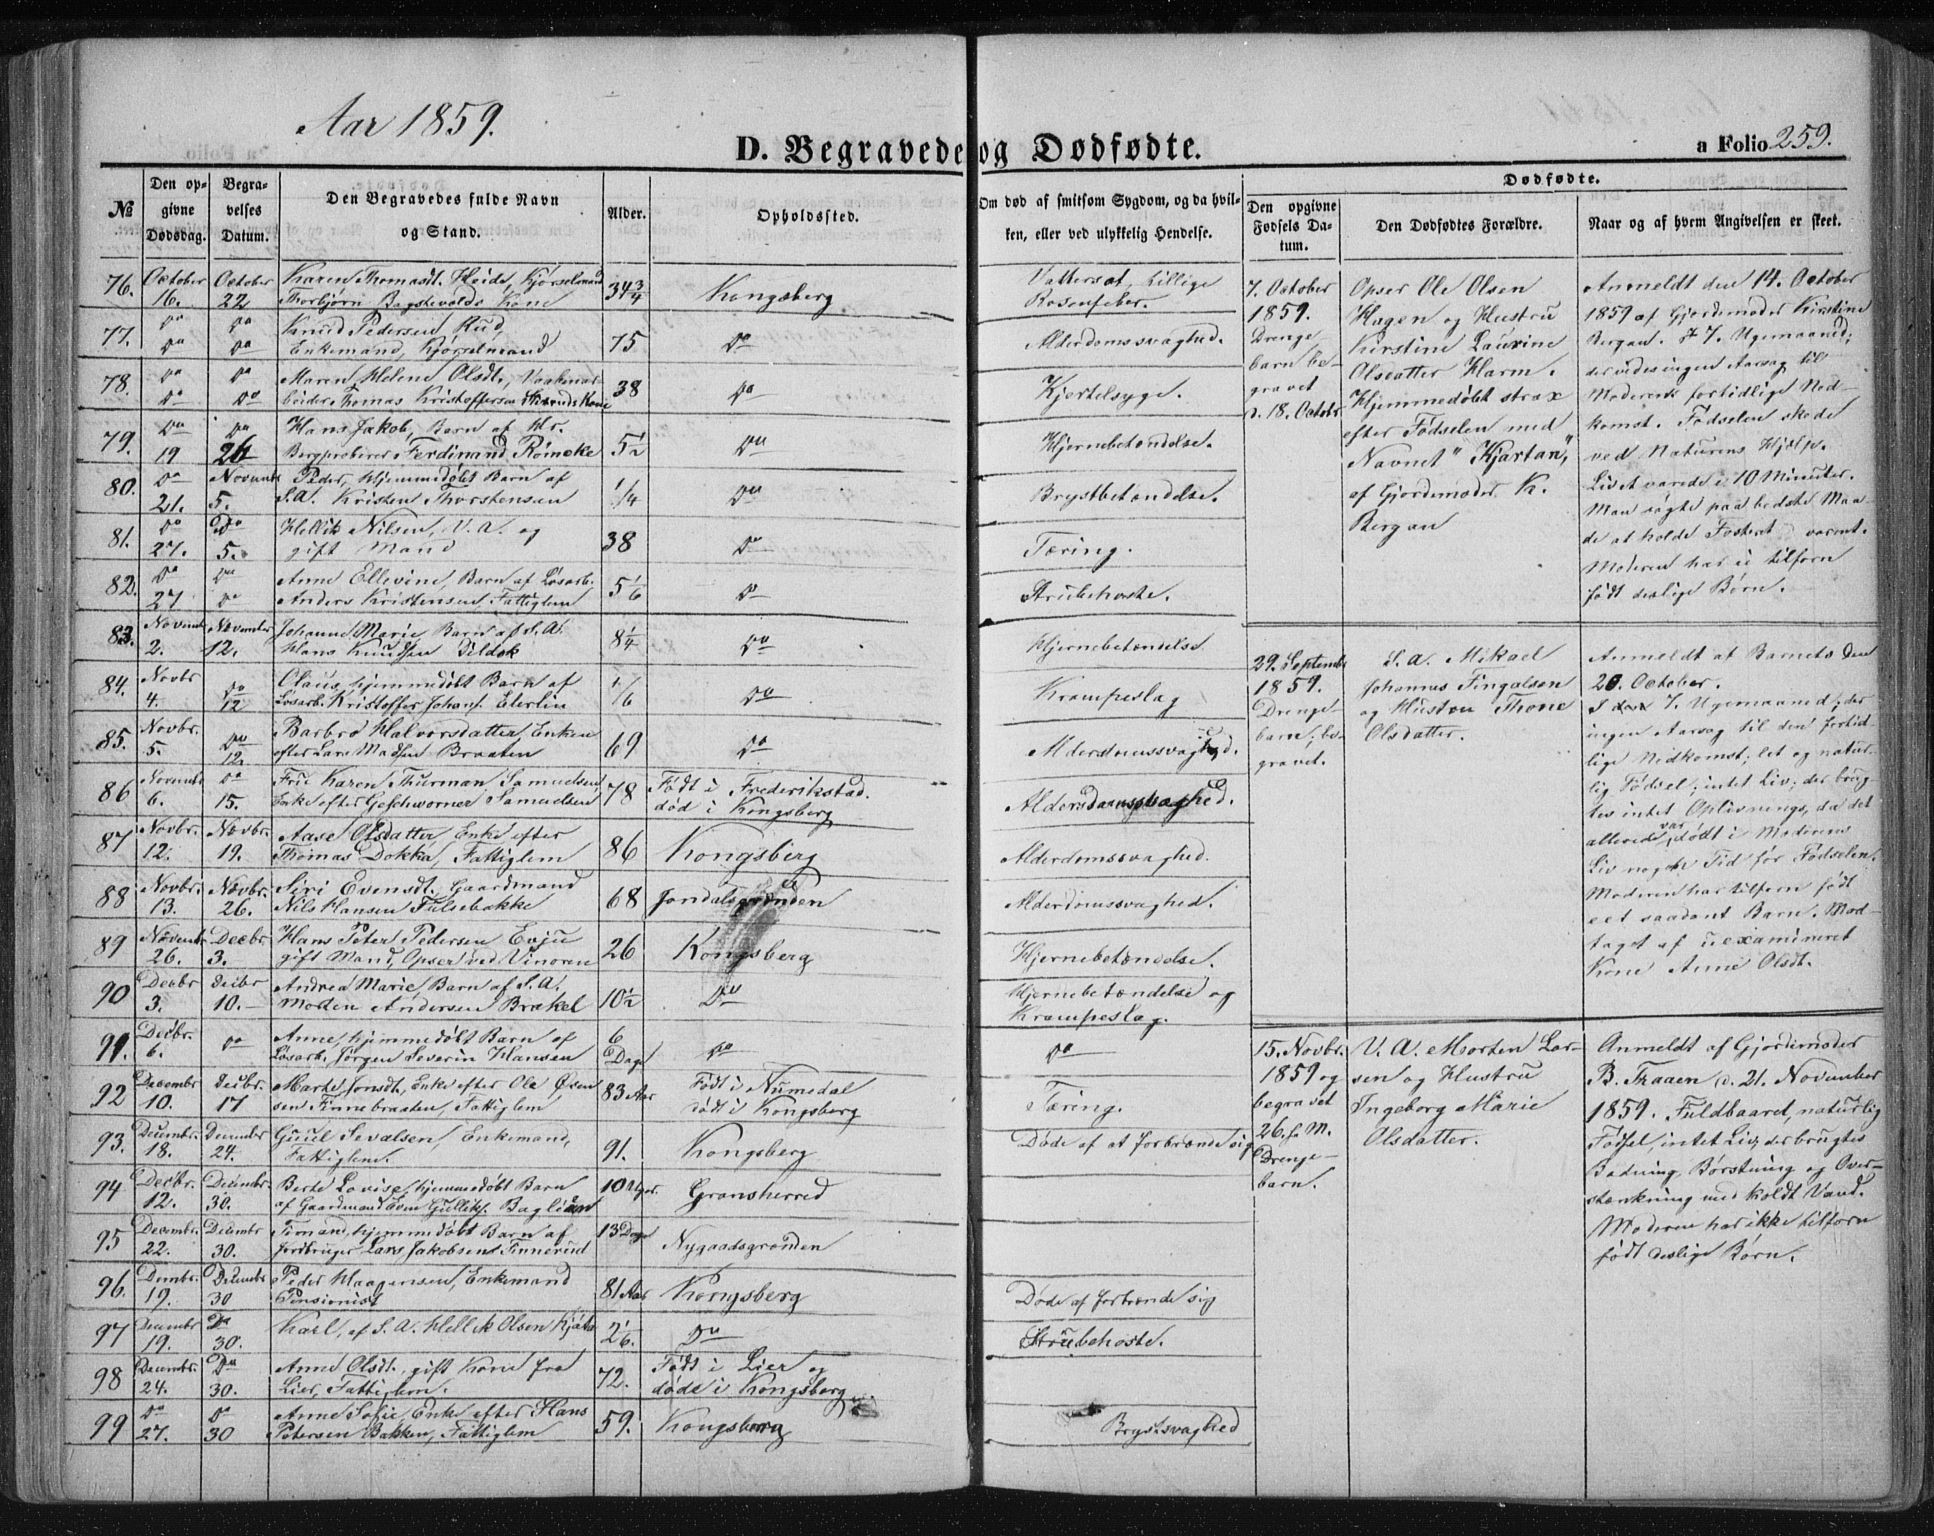 Aar 1859.
D. Begravede og Dødfødte.
a Folio 259.
№
Den opgivne Dødsdag.
Begravelses Datum.
Den Begravedes fulde Navn og Stand.
Alder.
Opholdssted.
Om død af smitsom Sygdom, og da hvilken, eller ved ulykkelig Hendelse.
Dødfødte.
Den opgivne Fødsels Datum.
Den Dødfødtes Forældre.
Naar og af hvem Angivelsen er skeet.
76. October 16. October 22. Karen Thomasdt. Heide, Kjørselsmand
Thorbjørn Kone 34 3/4 Kongsberg
77. Do Do Do Do Knud Pedersen Rud,
Enkemand, Kjørselmand 75 Do Alderdomssvaghed.
78. Do Do Do Do Maren Helene Olsdt.,
Thomas Kristoffersen Kone 38 Do Kjertelsyge.
79. Do 19 Do 26 Hans Jakob, Barn af Hr.
Bergprobirer Ferdinand Römcke 5 1/2 Do Hjernebetændelse.
80. Do 21. Novembr 5. Peder, Hjemmedøbt Barn af
S.A. Kristen Thorstensen 1/4 Do Brystbetændelse.
81. Do 27. Do 5. Hellik Nilsen, V. A. og
gift Mand 38 Do Tæring.
82. Do 27 Do Do Anne Ellevine, Barn af Løsarb.
Anders Kristensen, Fattiglem 5 1/6 Do Strubehoste.
83. Novembr 2. November 12. Johanne Marie Barn af S.A.
Hans Knudsen 8 1/4 Do Hjernebetændelse.
84. Novbr 4. Do 12 Olaus, hjemmedøbt Barn af
Løsarb. Kristoffer Johans. 1/6 Do Krampeslag
85. Novbr. 5. Do 12. Barbro Halvorsdatter, Enken
efter Lars Madsen Braaten 69 Do Alderdomssvaghed.
86 Novembr 6. Do 15. Fru Karen Thurman Samuelsen,
Enke efter Geschworner Samuelsen 78 Født i Frederikstad.
død i Kongsberg Alderdomssvaghed.
87 Novbr. 12. Novbr. 19. Aase Olsdatter, Enke efter
Thomas Dokka, Fattiglem 86 Kongsberg Alderdomssvaghed.
88 Novbr. 13. Novbr. 26. Siri Evensdt., Gaardmand
Nils Hansen Falsebakke 68 Jondalsgrænden Alderdomssvaghed.
89 Novembr 26. Decbr. 3. Hans Peter Pedersen Evju
gift Mand, Opser ved Vinoren 26 Kongsberg Hjernebetændelse.
90 Decbr 3. Decbr 10. Andrea Marie Barn af S.A.
Morten Andersen Brækel 10 1/2 Do Hjernebetændelse og
Krampeslag.
91. Decbr. 6. Do Anne, hjemmedøbt Barn af
Løsarb. Jørgen Severin Hansen 6 Dage Do Do
92 Decembr 10. Decbr. 17 Marte Jonsdt, Enke efter Ole
Finnebraaten, Fattiglem 83 Aar Født i Numedal
dødt i Kongsberg Tæring.
93. Decembr. 18. December 24. Guul Sevalsen, Enkemand,
Fattiglem. 91. Kongsberg Døde af at forbrænde sig
94 Decbr. 12. Decembr. 30. Berte Lovise, hjemmedøbt Barn
af Gaardmand Even Gulliks. 10 Uger. Gransherred
95 Decembr 22. Decembr 30. hjemmedøbt Barn af
Jordbruger Lars Jakobsen Finnerud 13 Dage Nygaadsgrænden
96. Decembr. 19. Decembr 30 Peder Haagensen, Enkemand
Pensionist 81 Aar Kongsberg Døde af forbrænde sig
97 Decembr 19. Do 30. Karl, af S. A. Hellik Olsen 2 1/6. Do Strubehoste.
98 Decembr. 24. Do 30. Anne Olsdt., gift Kone fra
Lier, Fattiglem. 72. Født i Lier og
døde i Kongsberg
99 Do 27. Do 30 Anne Sofie, Enke efter Hans
Petersen Bakken, Fattiglem 59. Kongsberg Brystsvaghed
7. October
1859.
Drenge
barn be-
gravet
d. 18. Octobr
Opser Ole Olsen
Hagen og Hustru
Kirstine Laurine
Olsdatter Harm.
Hjemmedøbt strax
efter Fødselen med
Navnet "Kjartan",
af Gjordemoder K.
Bergan
Anmeldt den 14. October
1859 af Gjordemoder Kirstine
Bergan. I 7. Ugemaaned;
der vides ingen Aarsag til
Moderens fortidlige Ned-
komst. Fødselen skede
ved Naturens Hjælp.
Livet varede i 10 Minuter.
Man søgte paa bedste Maa-
de at holde Fosteret varmt.
Moderen har ei tilforn
født deslige Børn.
29. Septembr
1859.
Drenge
barn; be-
gravet.
S. A. Mikael
Johannes Fingalsen
og Hustru Thone
Olsdatter.
Anmeldt at Barnets den
20. October.
7. Ugemaaned; der
ingen Aarsag til den fortid-
lige Nedkomst; let og natur-
lig Fødsel; intet Liv; der brug-
tes intet Oplivnings, da det
allerede var dødt i Moderens
Liv nogle Tid før Fødselen.
Moderen har tilforn født
eet saadant Barn. Mod-
taget af uexamineret
Kone Anne Olsdt.
15. Novbr.
1859 og
begravet
26. s. M.
Drenge-
barn.
V. A. Morten Lar-
sen og Hustru
Ingeborg Marie
Olsdatter.
Anmeldt af Gjordemoder
B. Traaen d. 21. November
1859. Fuldbaaret, naturlig
Fødsel, intet Liv, der brugtes
Badning, Børstning og Over-
stænkning med koldt Vand.
Moderen har ikke tilforn
født deslige Børn.